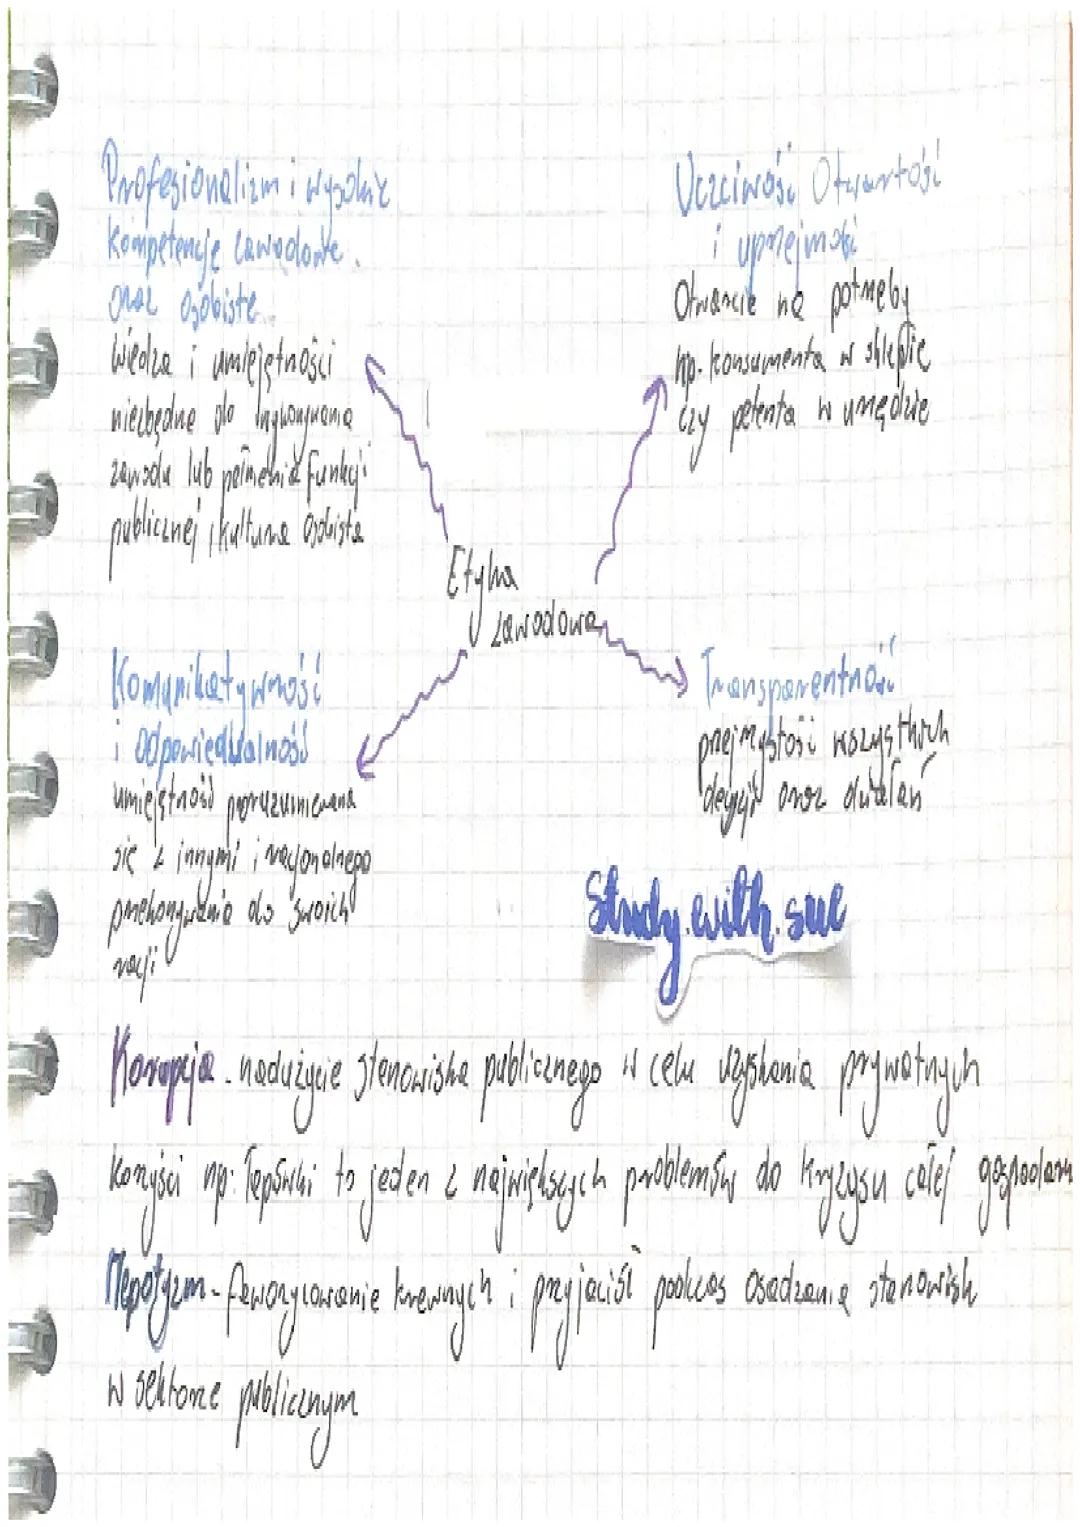 Profesjonalizm i wysokie
kompetencje zawodowe
oraz osobiste
Wiedza i umiejętności
niezbędne do wykonywania
zawodu lub pełnienia funkcji
publicznej, kultura osobista
Uczciwość Otwartość
i uprzejmość
Otwarcie na potrzeby
np. konsumenta w sklepie
czy petenta w urzędzie
Etyka
zawodowa
Komunikatywność
i odpowiedzialność
umiejętność porozumiewania
się z innymi i racjonalnego
przekonywania do swoich
racji
Transparentność
przejrzystość wszystkich
decyzji oraz działań
Study.with.sue
Korupcja - nadużycie stanowiska publicznego w celu uzyskania prywatnych
korzyści np: Łapówki to jeden z największych problemów do kryzysu całej
Nepotyzm - faworyzowanie krewnych i przyjaciół podczas osadzania stanowisk
w sektorze publicznym